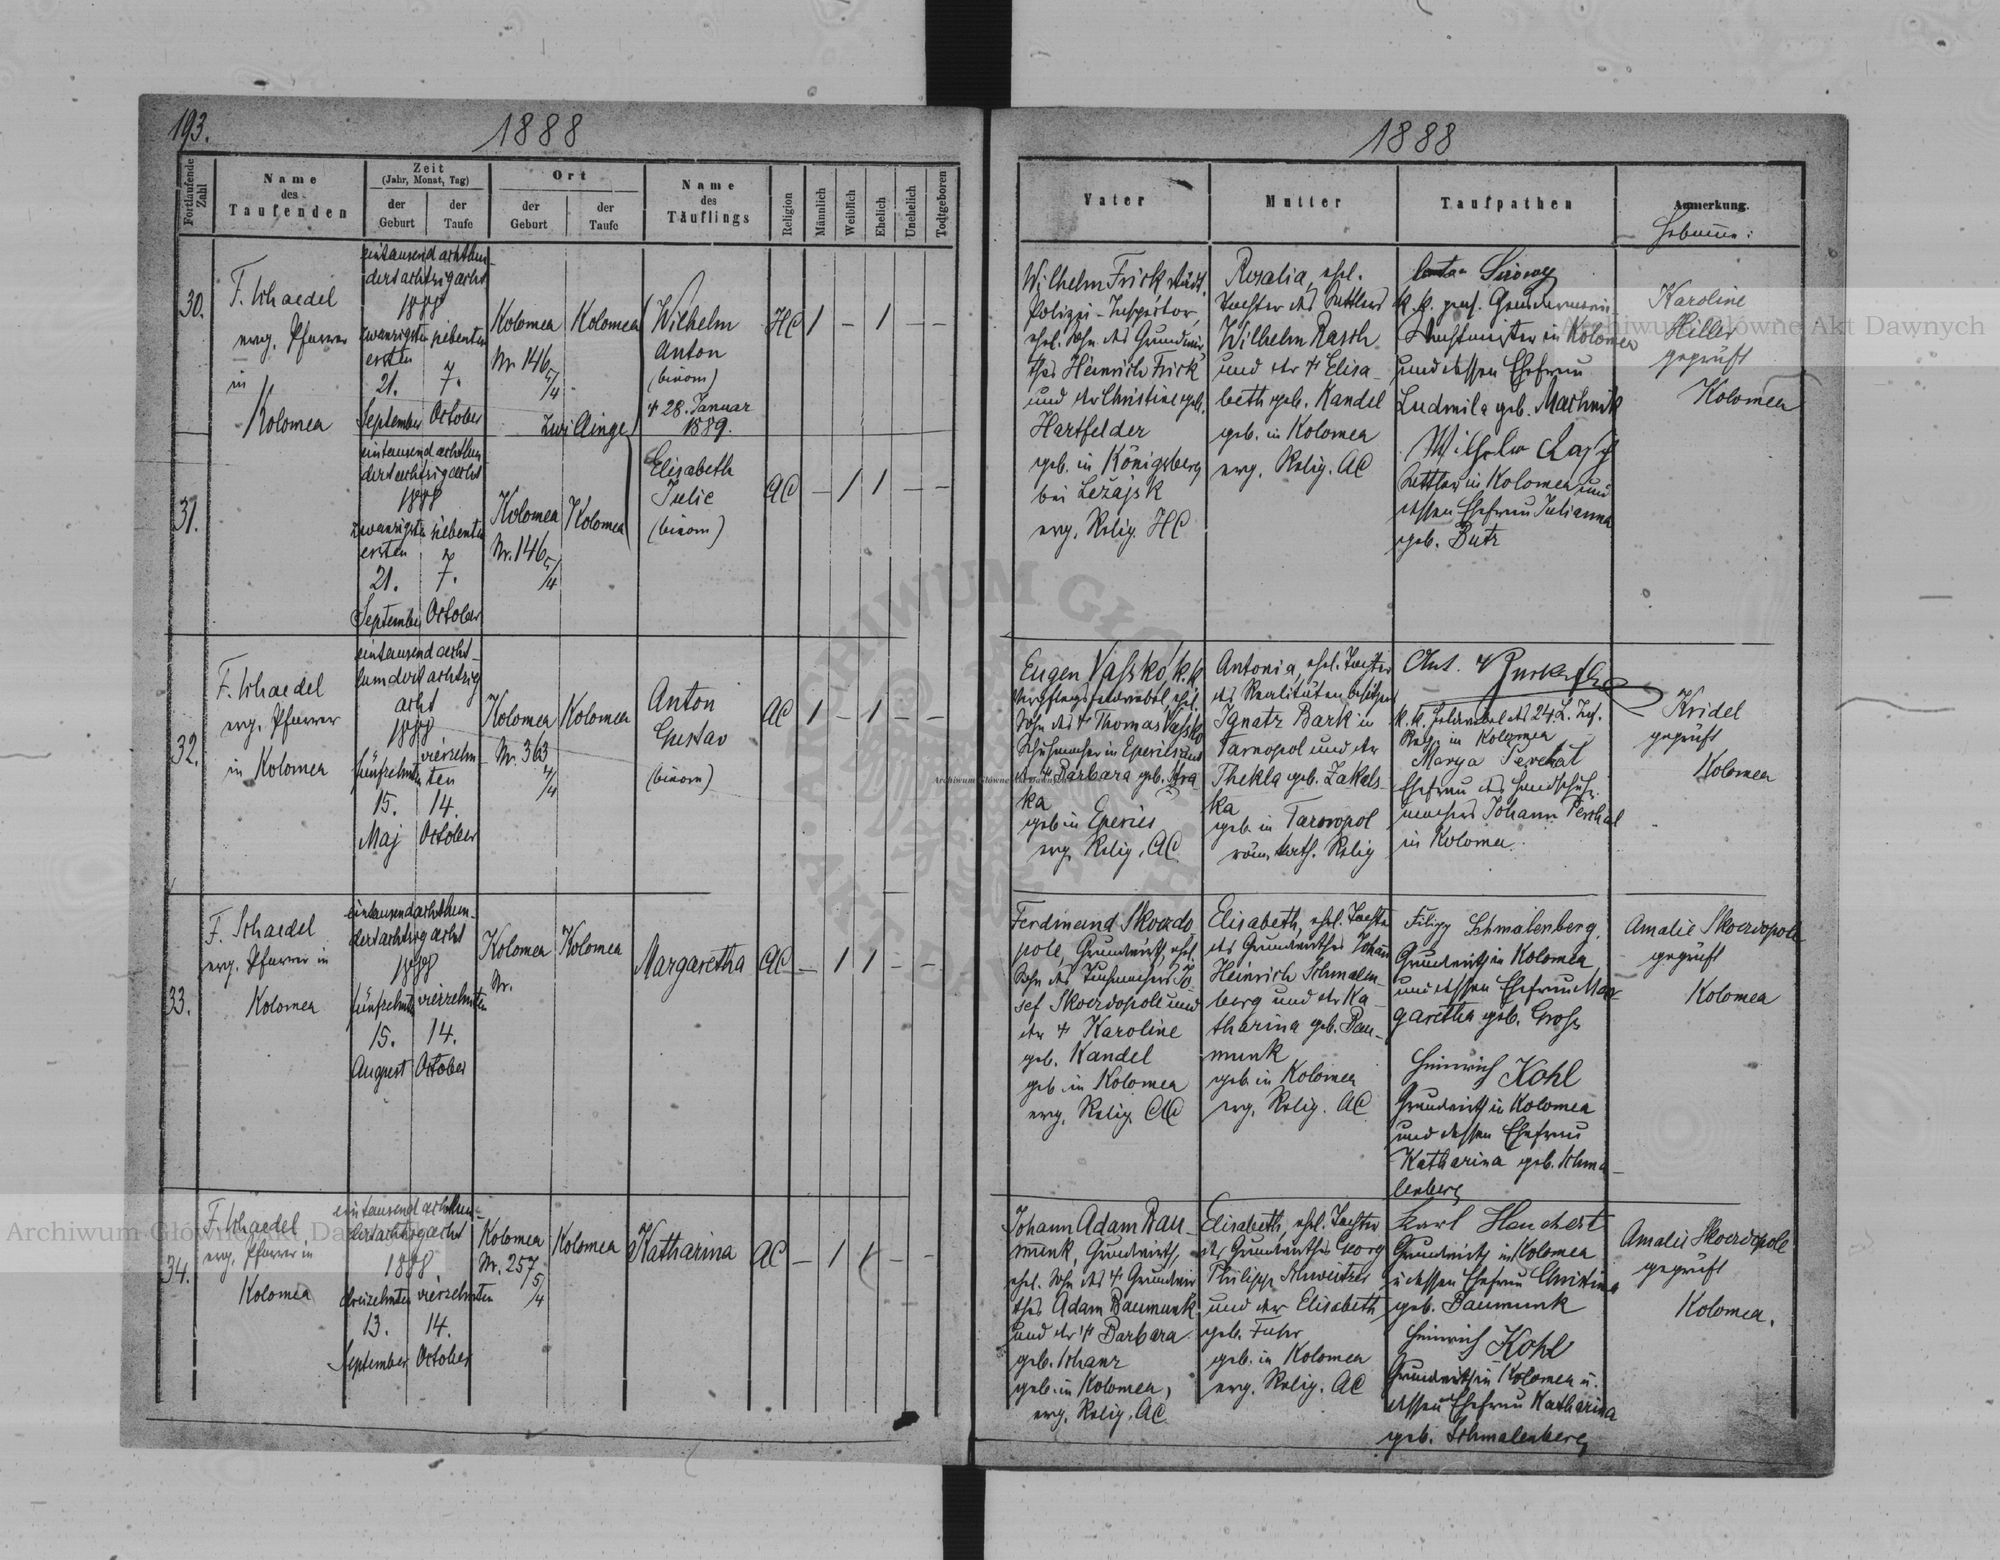 193.
1888
Fortlaufende Zahl
Name des Taufenden
Zeit
(Jahr, Monat, Tag)
der Geburt
der Taufe
Ort
der Geburt
der Taufe
Name des Täuflings
Religion
Männlich
Weiblich
Ehelich
Unehelich
Todtgeboren
30.
F. Schaedel
evg. Pfarrer
in
Kolomea
eintausend achthun-
dertachtzigacht
1888
zwanzigsten siebenten
ersten
21. 7.
September October
Kolomea
Nr. 146 5/4
Kolomea
Zwillinge
Wilhelm
Anton
(binom)
† 28. Januar
1889.
HC 1 – 1 – –
31.
eintausend achthun-
dertachtzigacht
1888
zwanzigsten siebenten
ersten
21. 7.
September October
Kolomea
Nr. 146 5/4
Kolomea
Elisabeth
Julie
(binom)
AC – 1 1 – –
32.
F. Schaedel
evg. Pfarrer
in Kolomea
eintausend acht-
hundert achtzig
acht
1888
fünfzehnten vierzehn-
ten
15. 14.
Maj October
Kolomea
Nr. 363 7/4
Kolomea
Anton
Gustav
(binom)
AC 1 – 1 – –
33.
F. Schaedel
evg. Pfarrer in
Kolomea
eintausend achthun-
dertachtzigacht
1888
fünfzehnten vierzehnten
15. 14.
August October
Kolomea
Nr.
Kolomea
Margaretha
AC – 1 1 – –
34.
F. Schaedel
evg. Pfarrer in
Kolomea
eintausend achthun-
dertachtzigacht
1888
dreizehnten vierzehnten
13. 14.
September October
Kolomea
Nr. 257 5/4
Kolomea
Katharina
AC – 1 1 – –
1888
Vater
Mutter
Taufpathen
Anmerkung.
Hebamme:
Wilhelm Frick städt.
Polizzi-Inspector,
ehel. Sohn des Grundwir
thes Heinrich Frick
und der Christine geb.
Hartfelder
geb. in Königsberg
bei Leżajsk
evg. Relig. HC
Rosalia, ehel.
Tochter des Sattlers
Wilhelm Rasch
und der † Elisa-
beth geb. Kandel
geb. in Kolomea
evg. Relig. AC
k. k. Gendarmerie
Wachtmeister in Kolomea
und dessen Ehefrau
Ludmila geb. Machnik
Wilhelm Rasch
Sattler in Kolomea und
dessen Ehefrau Julianna
geb. Butz
Karoline
Hiller
geprüft
Kolomea
Eugen Vaßko, k. k.
Verpflegsfeldwebel, ehel.
Sohn des † Thomas Vaßko
Schuhmacher in Eperies und
der † Barbara geb. Kra-
ka
geb. in Eperies
evg. Relig. AC
Antonia, ehel. Tochter
des Realitätenbesitzers
Ignatz Bark in
Tarnopol und der
Thekla geb. Zakals-
ka
geb. in Tarnopol
röm. kath. Relig
Ant.
k. k. Feldwebel des 24 L. Inf.
Regts in Kolomea
Marya Perchal
Ehefrau des Handschuh-
machers Johann Perchal
in Kolomea.
Kridel
geprüft
Kolomea
Ferdinand Skoerdo
pole, Grundwirth, ehel.
Sohn des Tuchmachers Jo-
sef Skoerdopole und
der † Karoline
geb. Kandel
geb. in Kolomea
evg. Relig. AC
Elisabeth, ehel. Tochter
des Grundwirthes Johann
Heinrich Schmalen-
berg und der Ka-
tharina geb. Bau-
munk
geb. in Kolomea
evg. Relig. AC
Filipp Schmalenberg,
Grundwirth in Kolomea
und dessen Ehefrau Mar-
garetha geb. Groß
Heinrich Kohl
Grundwirth in Kolomea
und dessen Ehefrau
Katharina geb. Schma-
lenberg
Amalie Skoerdopole
geprüft
Kolomea
Johann Adam Bau-
munk, Grundwirth,
ehel. Sohn des † Grundwir
thes Adam Baumunk
und der † Barbara
geb. Schanz
geb. in Kolomea,
evg. Relig. AC
Elisabeth, ehel. Tochter
des Grundwirthes Georg
Philipp Schweitzer
und der Elisabeth
geb. Fuhr
geb. in Kolomea
evg. Relig. AC
Karl Hauchert
Grundwirth in Kolomea
u dessen Ehefrau Christina
geb. Baumunk
Heinrich Kohl
Grundwirth in Kolomea u.
dessen Ehefrau Katharina
geb. Schmalenberg
Amalie Skoerdopole
geprüft
Kolomea.
Archiwum Główne Akt Dawnych